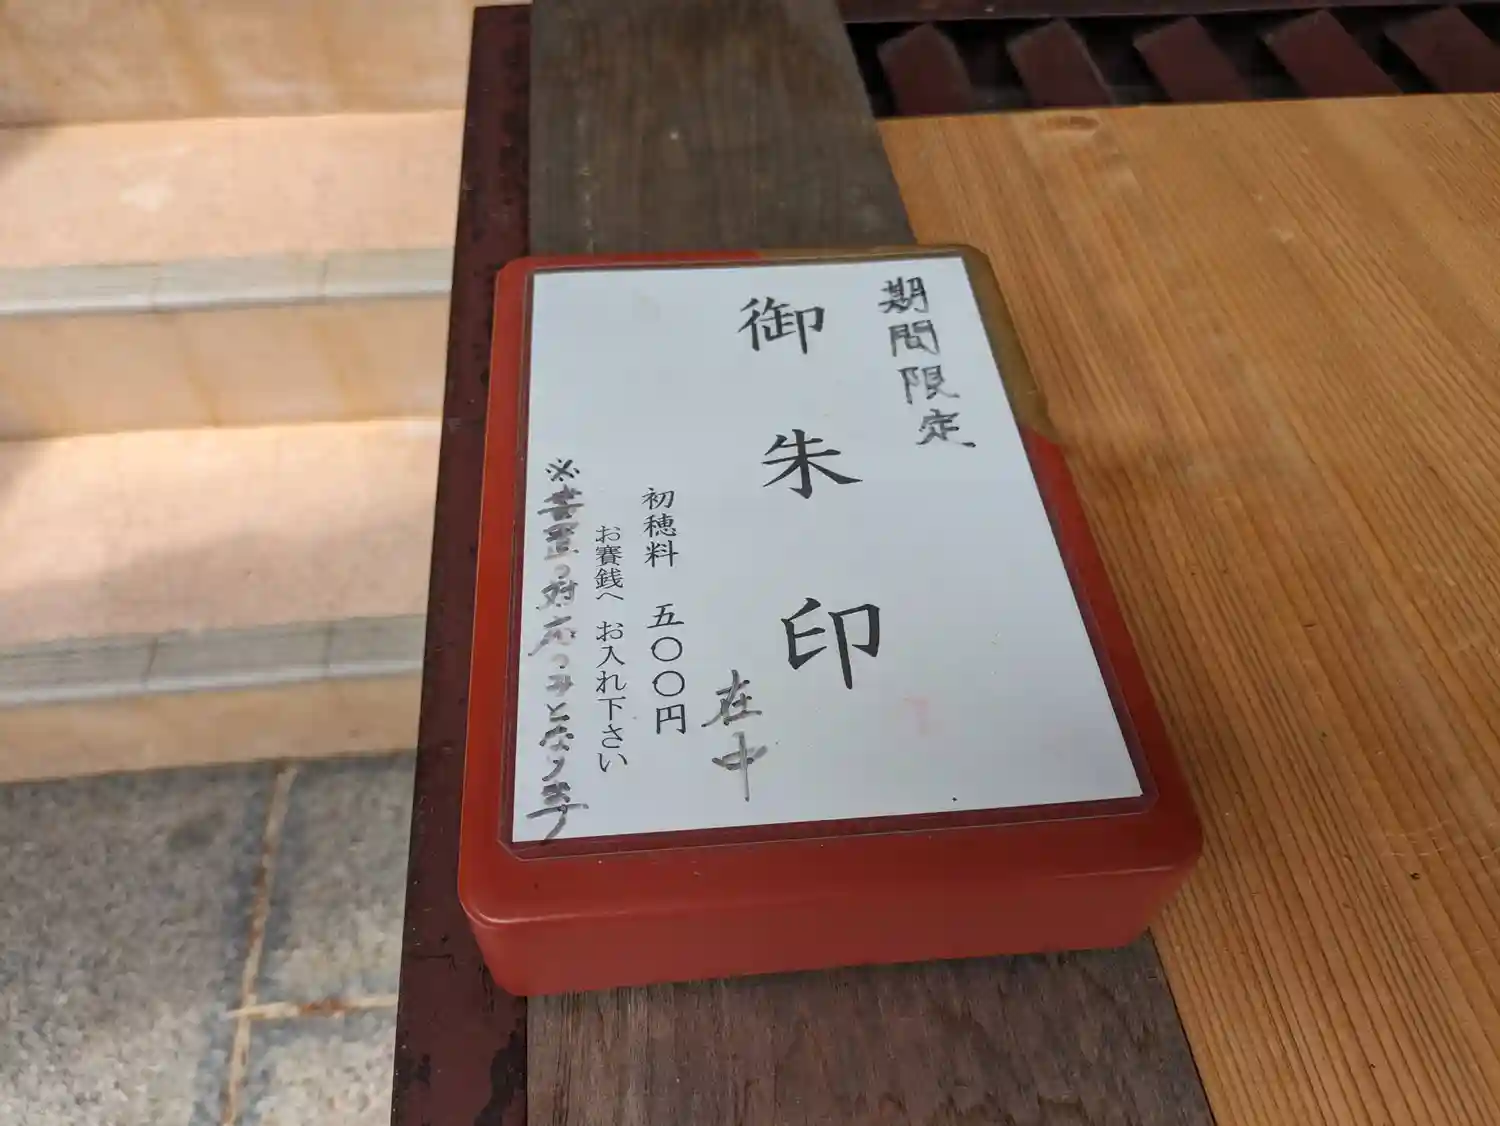 期間限定
御朱印
在中
初穂料 五〇〇円
お賽銭へ お入れ下さい
※書置の対応のみとなります